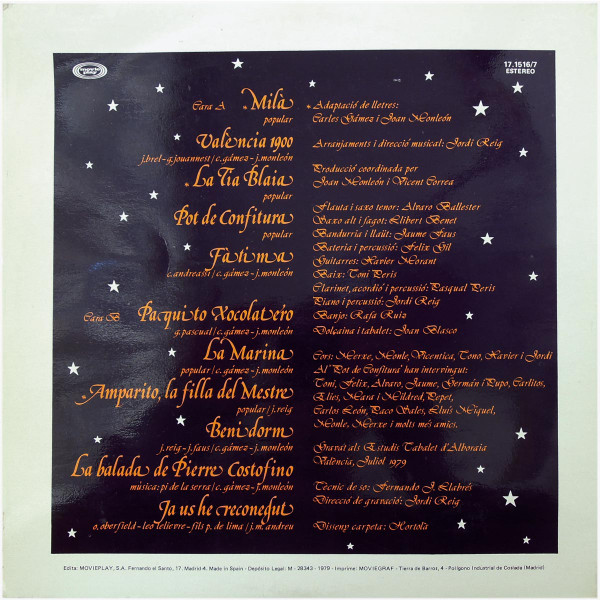 movieplay
17.1516/7
ESTEREO
Cara A
*Milà
popular
València 1900
j.brel-g.jouannest/c.gámez-j.monleón
*La Tia Blaia
popular
Pot de Confitura
popular
Fàtima
c.andreassi/c.gámez-j.monleón
Cara B
Pacquito Xocolatero
g.pascual/c.gámez-j.monleón
La Marina
popular/c.gámez-j.monleón
*Amparito, la filla del Mestre
popular/j.reig
Benidorm
j.reig-j.faus/c.gámez-j.monleón
La balada de Pierre Costofino
música: pi de la serra/c.gámez-j.monleón
Ja us he reconegut
o.oberfield-leo lelievre-fils p. de lima/j.m.andreu
*Adaptació de lletres:
Carles Gámez i Joan Monleón
Arranjaments i direcció musical: Jordi Reig
Producció coordinada per
Joan Monleón i Vicent Correa
Flauta i saxo tenor: Alvaro Ballester
Saxo alt i fagot: Llibert Benet
Bandurria i llaüt: Jaume Faus
Bateria i percussió: Felix Gil
Guitarres: Xavier Morant
Baix: Toni Peris
Clarinet, acordió i percussió: Pasqual Peris
Piano i percussió: Jordi Reig
Banjo: Rafa Ruiz
Dolçaina i tabalet: Joan Blasco
Cors: Merxe, Monle, Vicentica, Tono, Xavier i Jordi
Al 'Pot de Confitura' han intervingut:
Toni, Felix, Alvaro, Jaume, Germán i Pupo, Carlitos,
Elies, Mara i Mildred, Pepet,
Carlos León, Paco Sales, Lluís Miquel,
Monle, Merxe i molts més amics.
Gravat als Estudis Tabalet d'Alboraia
València, Juliol 1979
Tècnic de so: Fernando J. Llabrés
Direcció de gravació: Jordi Reig
Disseny carpeta: Hortolà
Edita: MOVIEPLAY, S.A. Fernando el Santo, 17. Madrid-4. Made in Spain - Depósito Legal: M - 28343 - 1979 - Imprime: MOVIEGRAF - Tierra de Barros, 4 - Polígono Industrial de Coslada (Madrid)